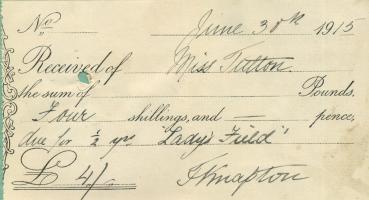 No June 30th 1915
Received of Miss Tutton.
the sum of Pounds,
Four shillings, and — pence,
due for ½ yrs 'Lady's Field'
£ 4/. FKnapton